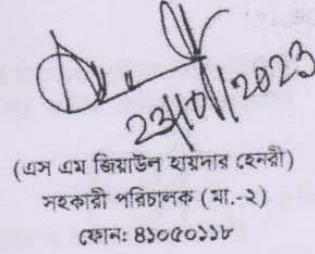 23/01/2023
(এস এম জিয়াউল হায়দার হেনরী)
সহকারী পরিচালক (মা.-২)
ফোন: ৪১০৫০১১৮